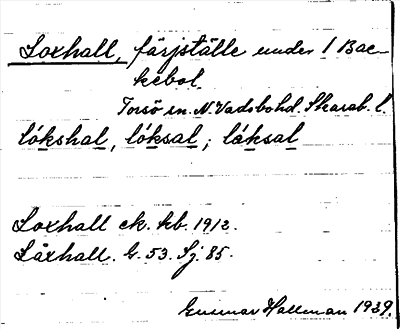 Loxhall, färjställe under 1 Bac-
kebol
Torsö sn. N. Vadsbohd. Skarab. l.
lókshal, lóksal; láksal
Loxhall ek. kb. 1912.
Låxhall. G. 53. Sj. 85.
Gunnar Hallman 1939.